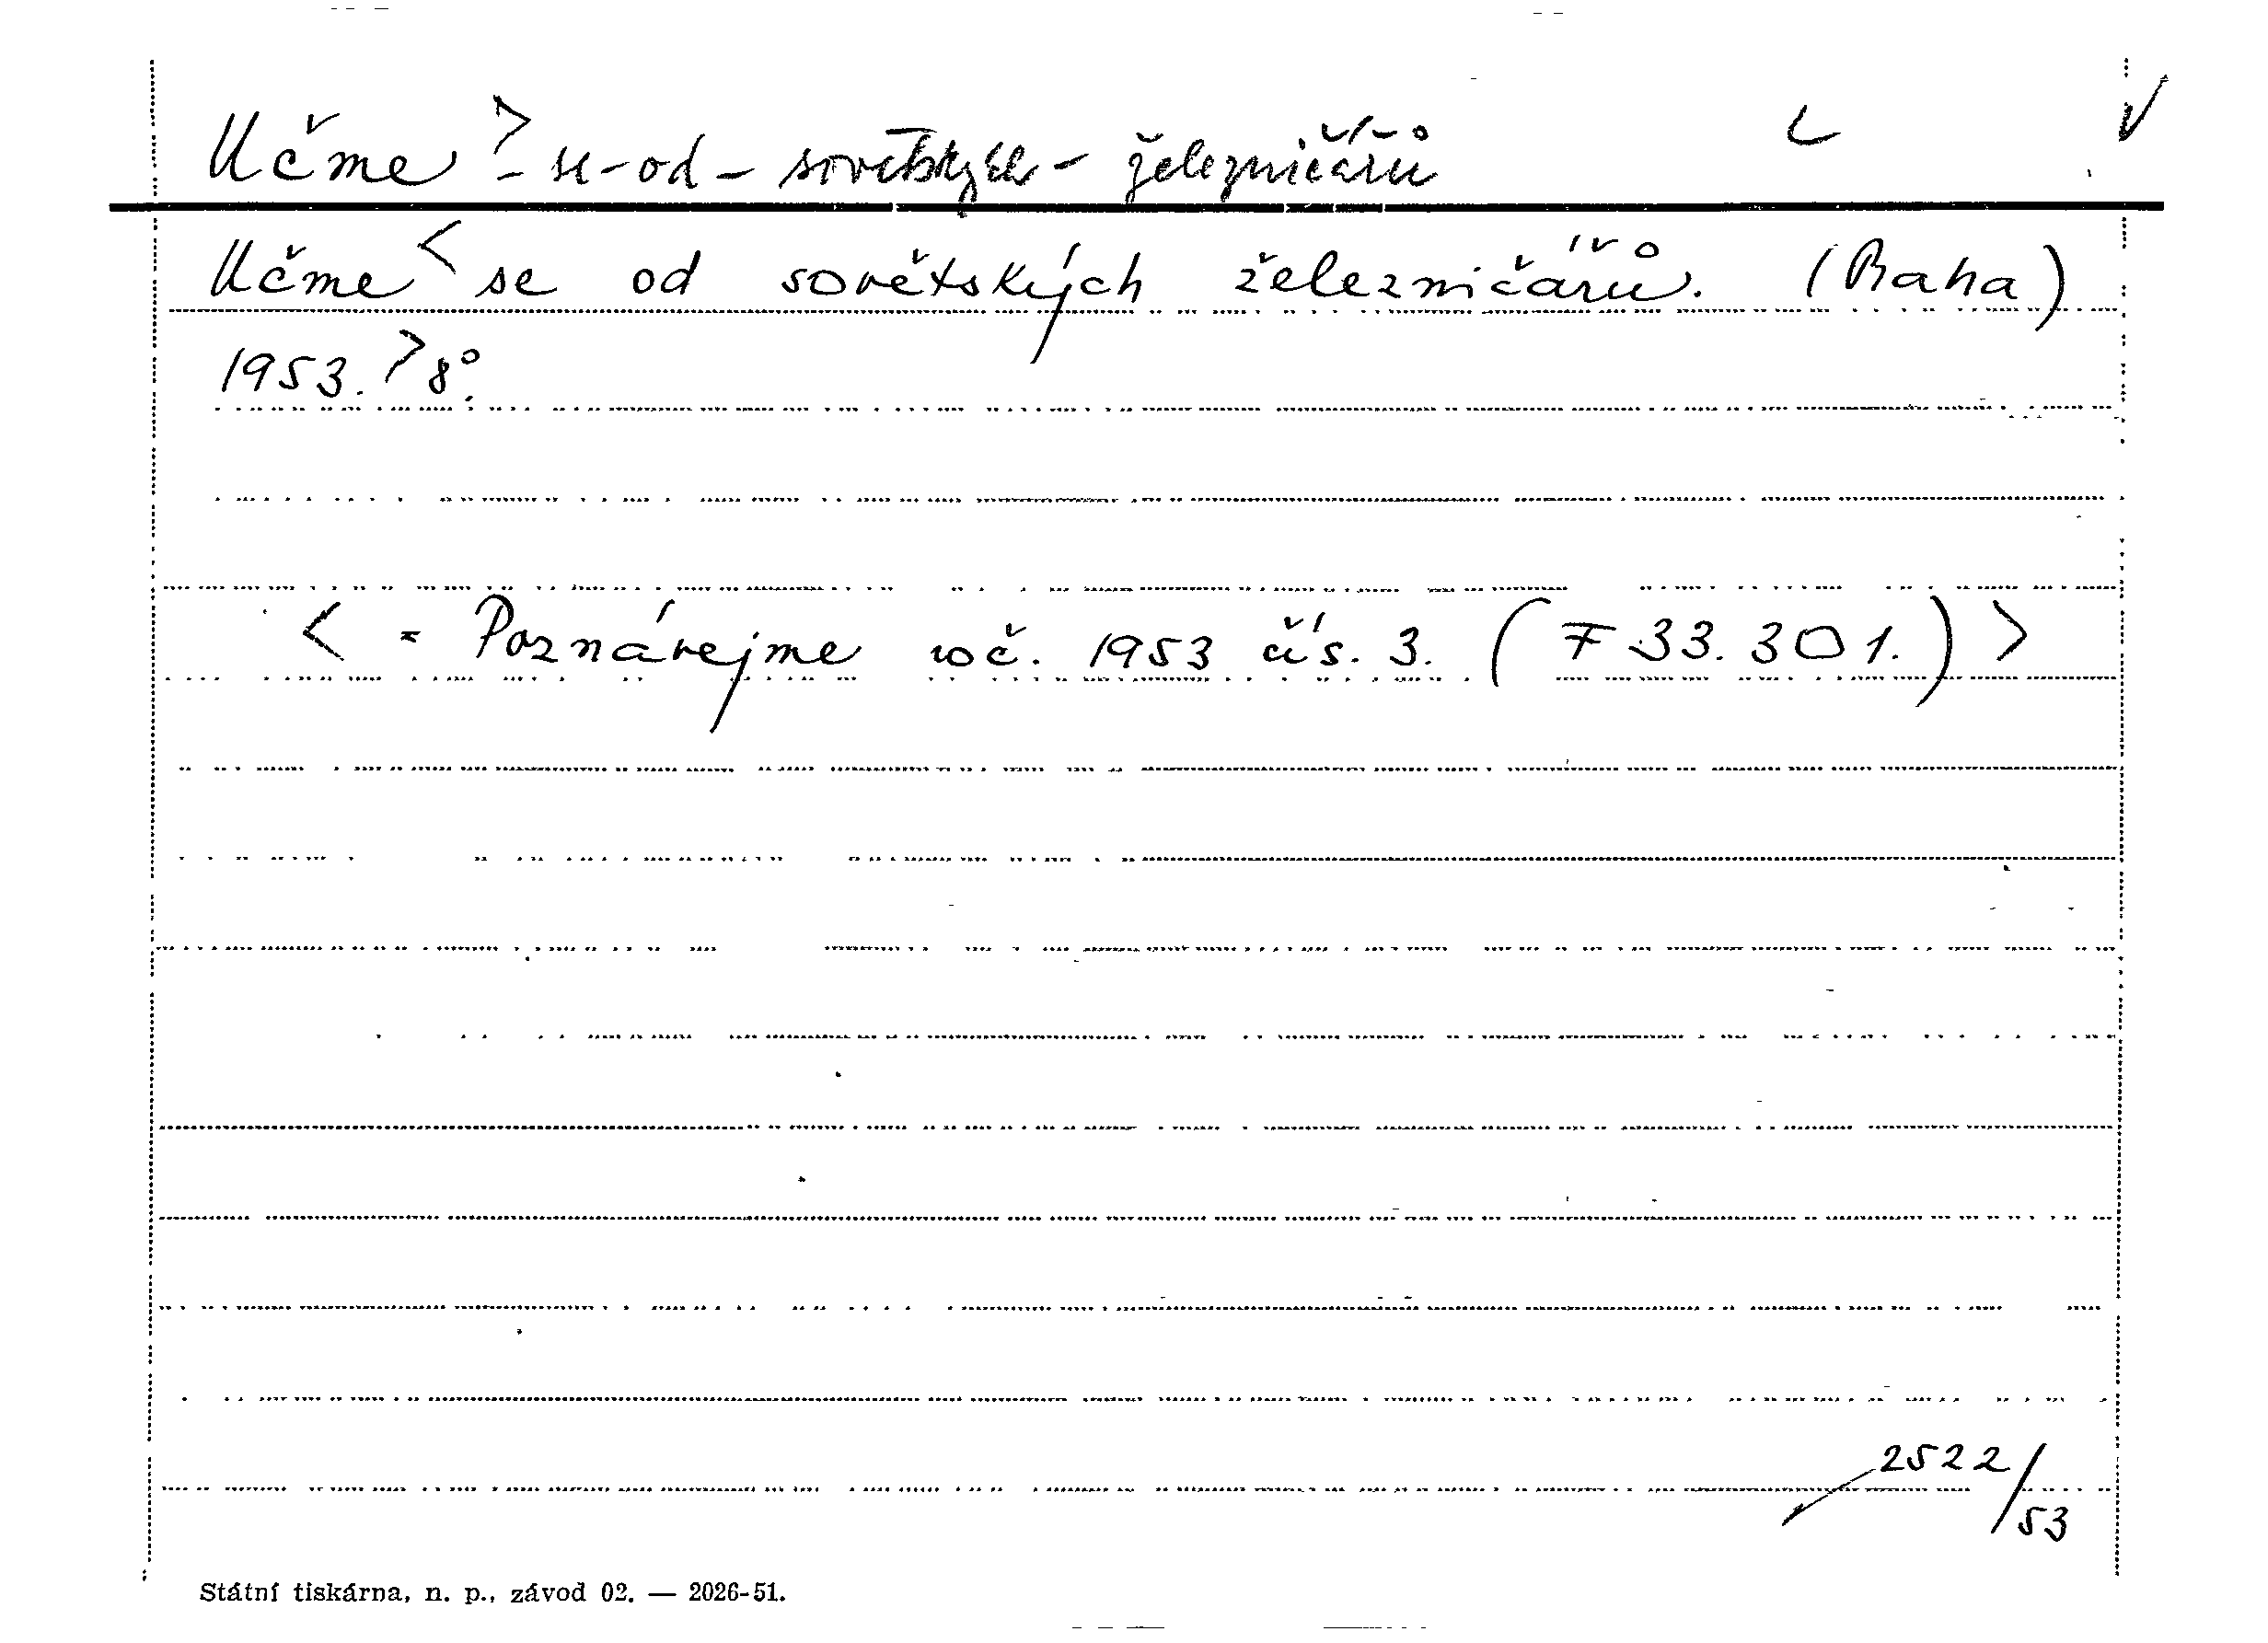 Učme > - se - od - sovětských - železničářů
Učme < se od sovětských železničářů. (Praha)
1953. > 8°.
< = Poznávejme roč. 1953 čís. 3. (F 33.301.) >
2522/53
Státní tiskárna, n. p., závod 02. — 2026-51.